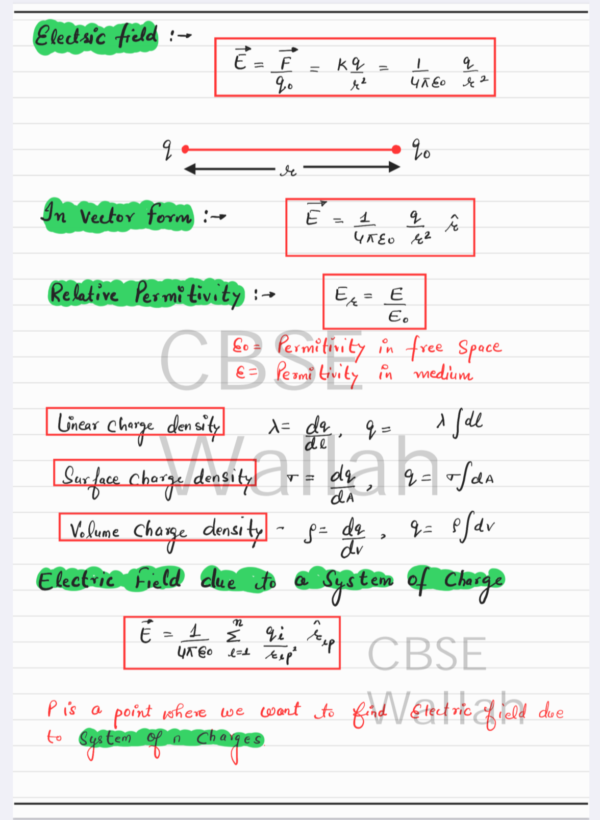 Electric field :→
E⃗ = F⃗/q₀ = Kq/r² = 1/4πε₀ q/r²
q r q₀
In Vector form :→ E⃗ = 1/4πε₀ q/r² r̂
Relative Permitivity :→ Eᵣ = E/E₀
ε₀ = Permitivity in free Space
ε = Permitivity in medium
CBSE
Linear charge density λ = dq/dl, q = λ∫dl
Wallah
Surface charge density σ = dq/dA, q = σ∫dA
Volume charge density - ρ = dq/dv, q = ρ∫dv
Electric Field due to a System of Charge
E⃗ = 1/4πε₀ Σⁿᵢ₌₁ qi/rᵢₚ² r̂ᵢₚ
CBSE
Wallah
P is a point where we want to find Electric field due
to System of n Charges